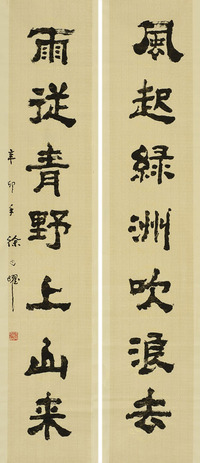 風起綠洲吹浪去
雨從青野上山来
辛卯年 徐